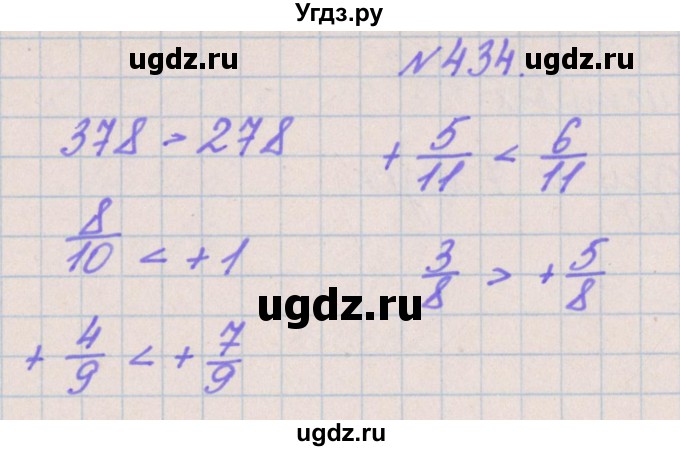 Угдз.ру
ugdz.ru ugdz.ru
№434.
378 > 278
+ 5/11 < 6/11
8/10 < + 1
3/8 > + 5/8
ugdz.ru
+ 4/9 < + 7/9
ugdz.ru